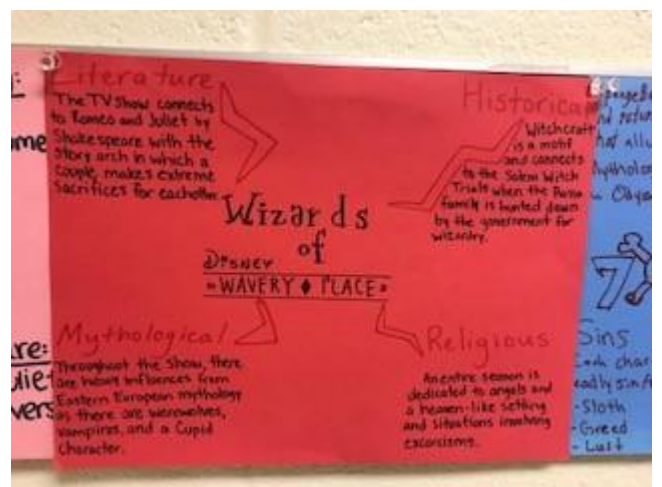 Literature
The TV Show connects
to Romeo and Juliet by
Shakespeare with the
story arch in which a
couple makes extreme
sacrifices for eachother.
Historical
Witchcraft
is a motif
and connects
to the Salem Witch
Trials when the Russo
family is hunted down
by the government for
wizardry.
Wizards
of
Disney
WAVERY ♦ PLACE
Mythological
Throughout the show, there
are heavy influences from
Eastern European mythology
as there are werewolves,
vampires, and a Cupid
Character.
Religious
An entire season is
dedicated to angels and
a heaven-like setting
and situations involving
excorsisms.
7
Sins
-Sloth
-Greed
-Lust